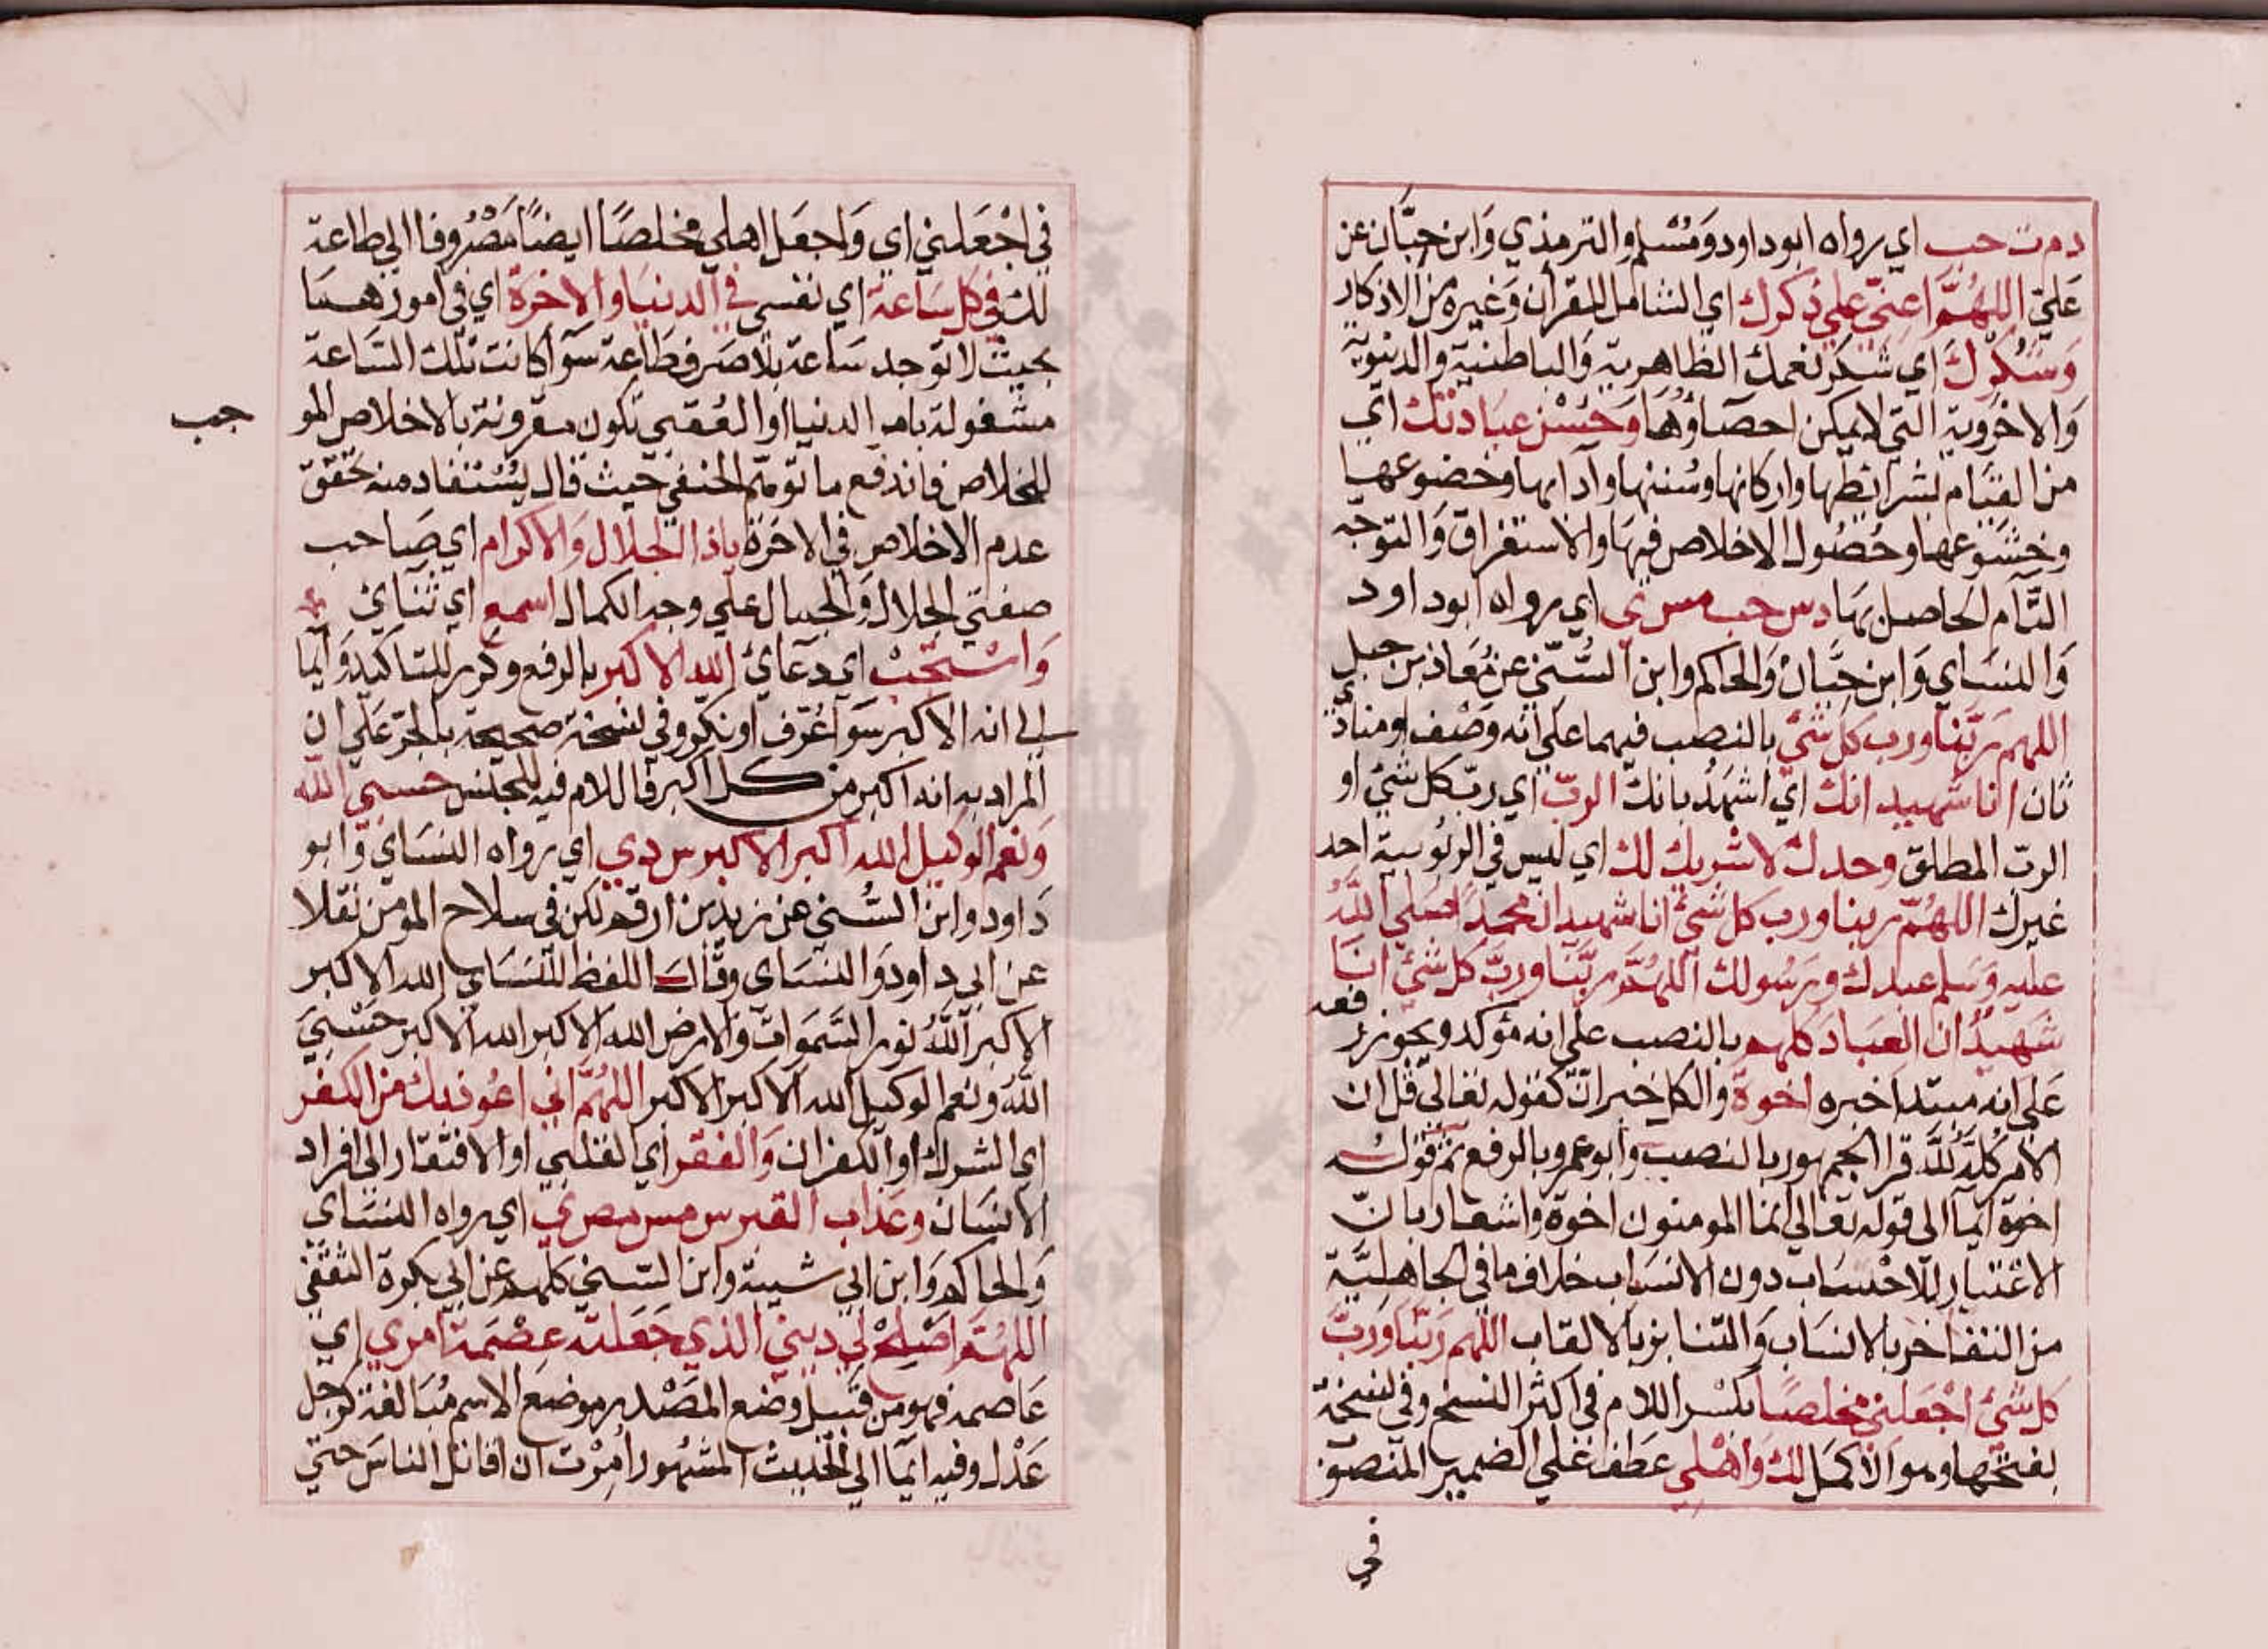 د م ت حب اي رواه ابو داود ومسلم والترمذي وابن حبان عن
علي اللهم اعني علي ذكرك اي الشامل للقرأن وغيره من الاذكار
وشكرك اي شكر نعمك الظاهرية والباطنية والدنيوية
والاخروية التي لا يمكن احصاؤها وحسن عبادتك اي
من القيام بشرائطها واركانها وسننها وآدابها وخضوعها
وخشوعها وحصول الاخلاص فيها والاستغراق والتوجه
التام الحاصل بها د س حب مس ي اي رواه ابو داود
والنساي وابن حبان والحاكم وابن السني عن معاذ بن جبل
اللهم ربنا ورب كل شئ بالنصب فيهما علي انه وصف او منادي
ثان انا شهيد انك اي اشهد بانك الرب اي رب كل شئ او
الرب المطلق وحدك لا شريك لك اي ليس في الربوبية احد
غيرك اللهم ربنا ورب كل شئ انا شهيد ان محمدا صلي الله
عليه وسلم عبدك ورسولك اللهم ربنا ورب كل شئ انا
شهيد ان العباد كلهم بالنصب علي انه مؤكد ويجوز رفعه
علي انه مبتدا خبره اخوة والكل خبر ان كقوله تعالي قل ان
الامر كله لله قرا الجمهور بالنصب وابو عمرو بالرفع ثم قوله
اخوة ايما الي قوله تعالي انما المومنون اخوة واشعار بان
الاعتبار للاحساب دون الانساب خلاف ما في الجاهلية
من التفاخر بالانساب والتنابز بالالقاب اللهم ربنا ورب
كل شئ اجعلني مخلصا بكسر اللام في اكثر النسخ وفي نسخة
بفتحها وهو الاكمل لك واهلي عطف علي الضمير المنصوب
في
في اجعلني اي واجعل اهلي مخلصا ايضا مصروفا الي طاعة
لك في كل ساعة اي نفسي في الدنيا والاخرة اي في امورهما
بحيث لا توجد ساعة بلا صرف طاعة سوآ كانت تلك الساعة
مشغولة بامر الدنيا او العقبي تكون مقرونة بالاخلاص المو
جب
للخلاص فاندفع ما توهم الحنفي حيث قال يستفاد منه تحقق
عدم الاخلاص في الاخرة ياذا الجلال والاكرام اي صاحب
صفتي الجلال والجمال علي وجه الكمال اسمع اي ثنائ
واستجب اي دعائ الله الاكبر بالرفع وكرر للتاكيد وايما
الي انه الاكبر سوآ عرف او نكر وفي نسخة صحيحة بالجر علي ان
المراد به انه اكبر من كل اكبر فاللام فيه للجنس حسبي الله
ونعم الوكيل الله اكبر الاكبر س د ي اي رواه النساي وابو
داود وابن السني عن زيد بن ارقم لكن في سلاح المومن نقلا
عن ابي داود والنساي وقال اللفظ للنساي الله الاكبر
الاكبر الله نور السموات والارض الله الاكبر الله الاكبر حسبي
الله ونعم الوكيل الله الاكبر الاكبر اللهم اني اعوذ بك من الكفر
اي الشرك او الكفران والفقر اي القلبي او الافتقار الي افراد
الانسان وعذاب القبر س مس مص ي اي رواه النساي
والحاكم وابن ابي شيبة وابن السني كلهم عن ابي بكرة الثقفي
اللهم اصلح لي ديني الذي جعلته عصمة امري اي
عاصمه فهو من قبيل وضع المصدر موضع الاسم مبالغة كرجل
عدل وفيه ايما الي الحديث المشهور امرت ان اقاتل الناس حتي